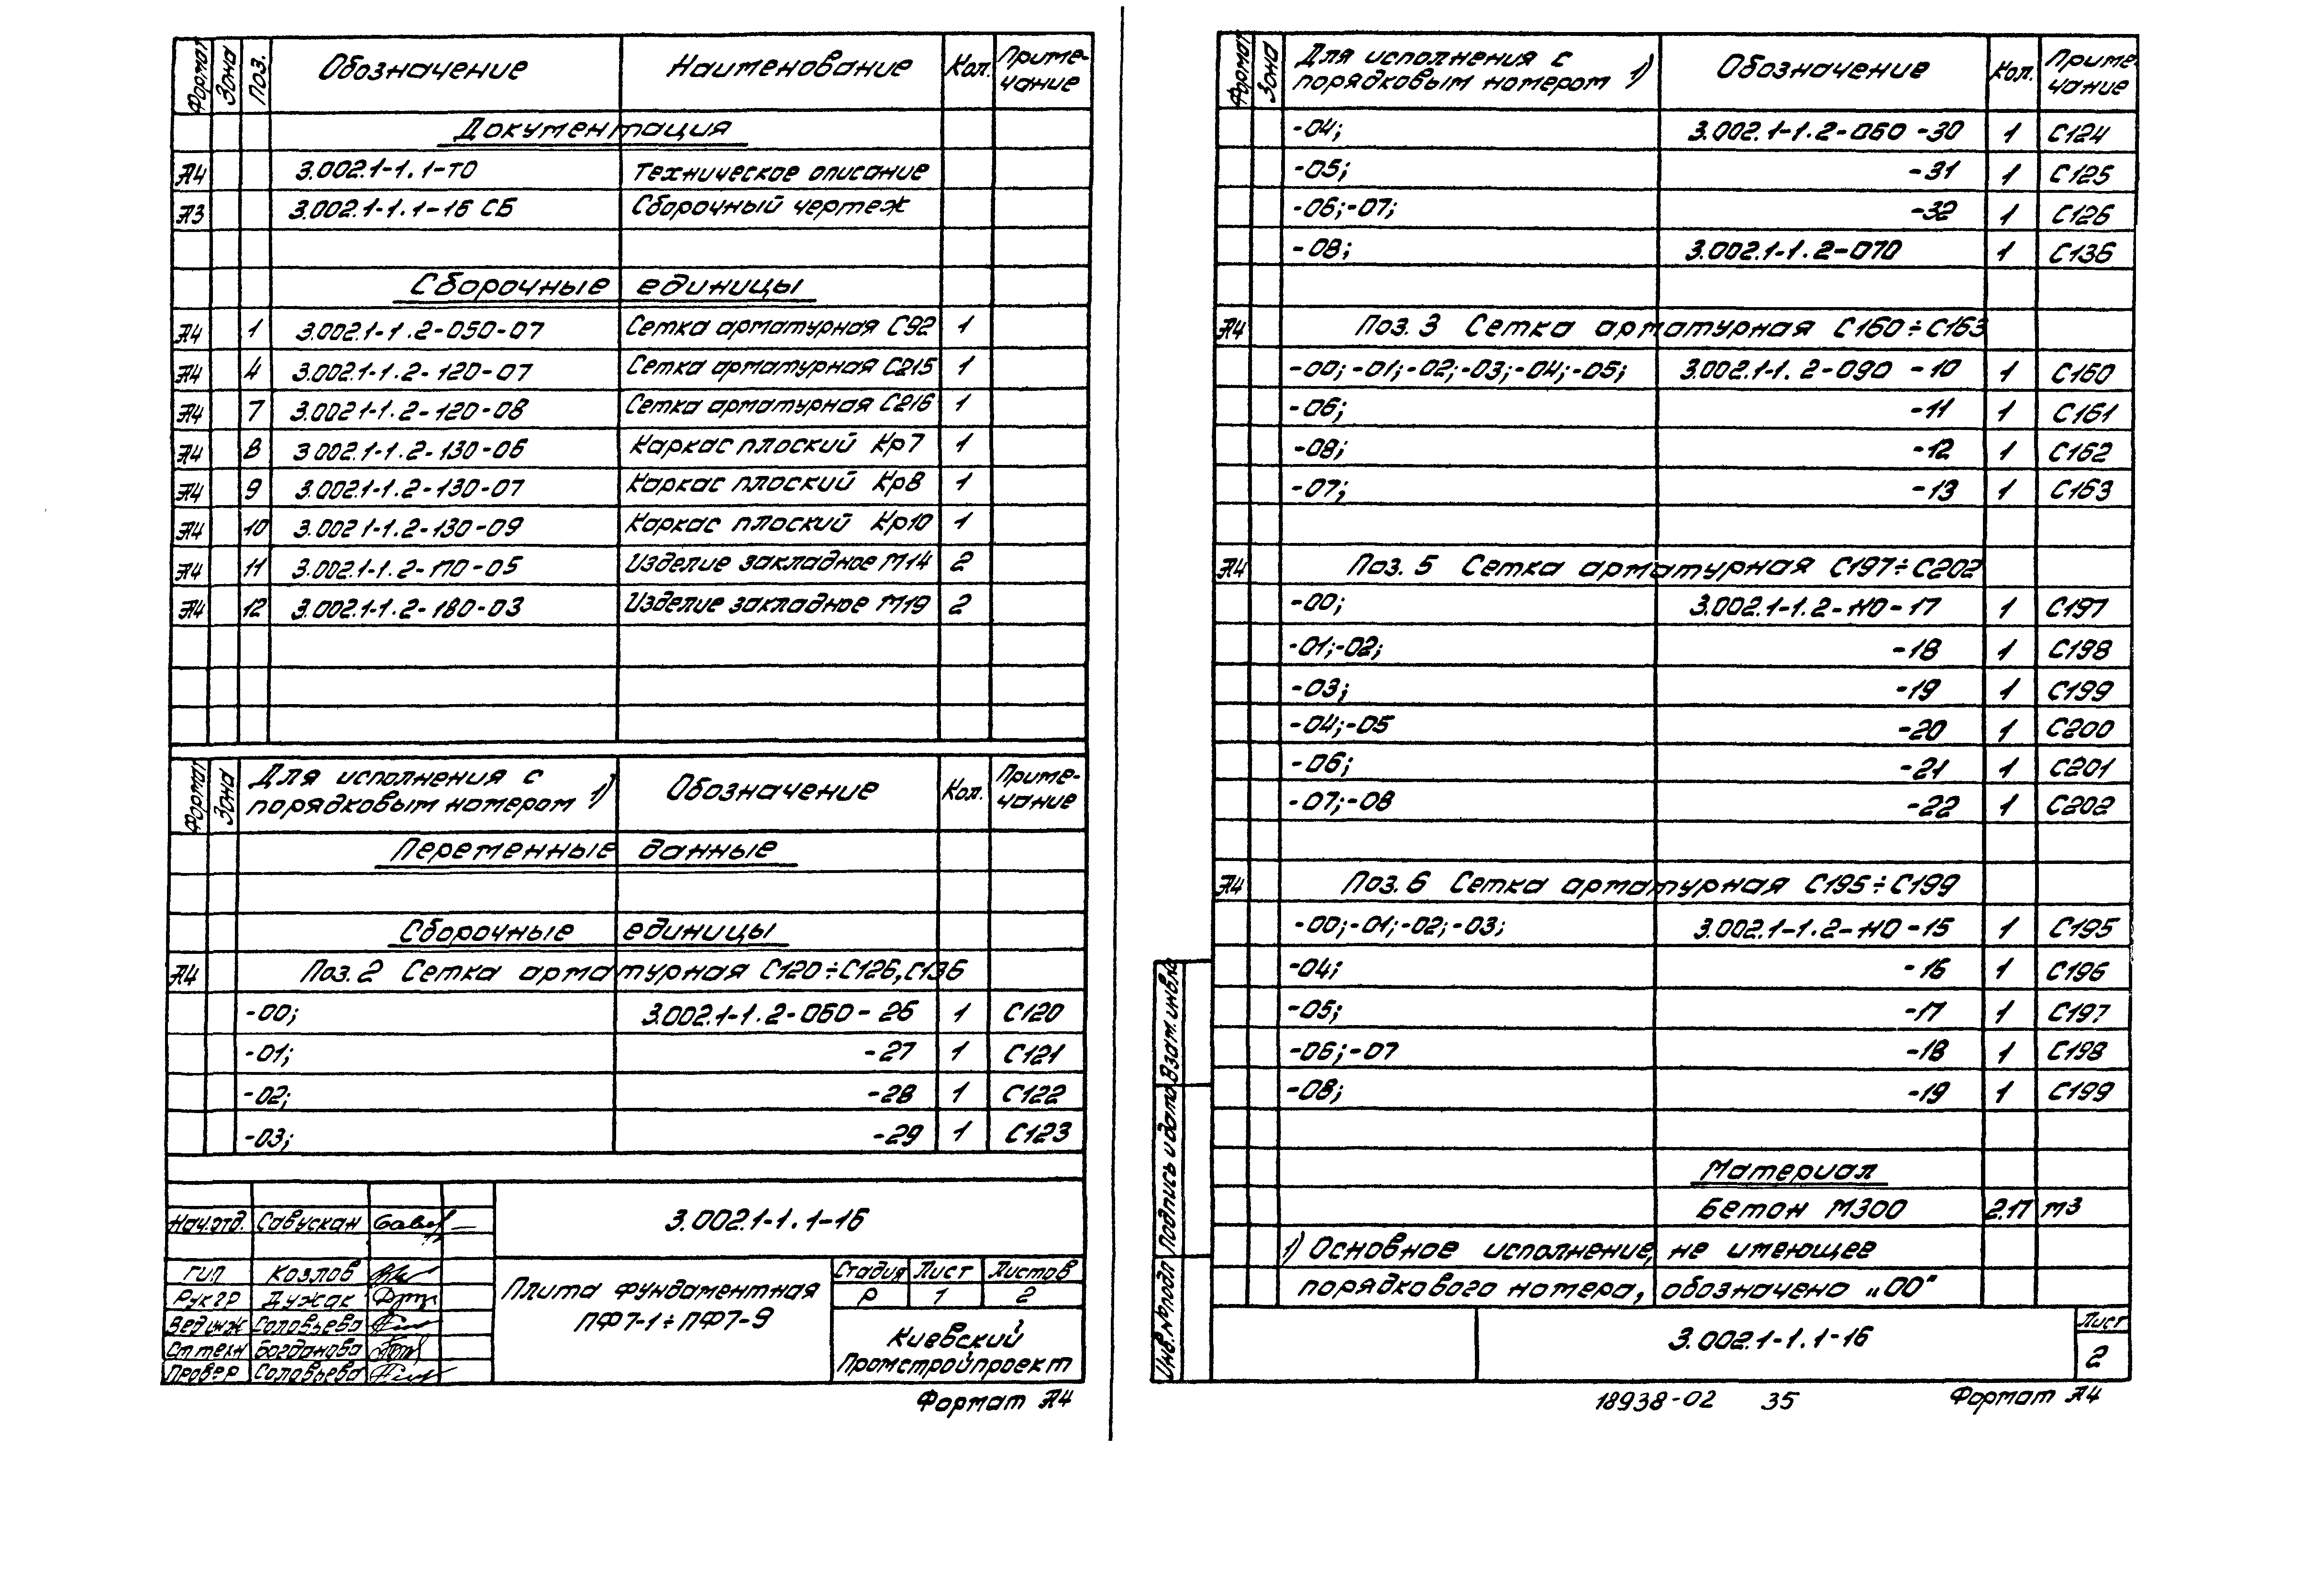 Формат Зона Поз. Обозначение Наименование Кол. Примечание
Документация
А4 3.002.1-1.1-ТО Техническое описание
А3 3.002.1-1.1-16 СБ Сборочный чертеж
Сборочные единицы
А4 1 3.002.1-1.2-050-07 Сетка арматурная С92 1
А4 4 3.002.1-1.2-120-07 Сетка арматурная С215 1
А4 7 3.002.1-1.2-120-08 Сетка арматурная С216 1
А4 8 3.002.1-1.2-130-06 Каркас плоский Кр7 1
А4 9 3.002.1-1.2-130-07 Каркас плоский Кр8 1
А4 10 3.002.1-1.2-130-09 Каркас плоский Кр10 1
А4 11 3.002.1-1.2-170-05 Изделие закладное М14 2
А4 12 3.002.1-1.2-180-03 Изделие закладное М19 2
Формат Зона Для исполнения с порядковым номером 1) Обозначение Кол. Примечание
Переменные данные
Сборочные единицы
А4 Поз. 2 Сетка арматурная С120÷С126, С136
-00; 3.002.1-1.2-060-26 1 С120
-01; -27 1 С121
-02; -28 1 С122
-03; -29 1 С123
3.002.1-1.1-16
Нач.отд. Савускан
ГИП Козлов
Рук гр Дужак
Вед инж Соловьева
Ст техн Богданова
Провер Соловьева
Плита фундаментная
ПФ7-1÷ПФ7-9
Стадия Лист Листов
Р 1 2
Киевский
Промстройпроект
Формат А4
Формат Зона Для исполнения с порядковым номером 1) Обозначение Кол. Примечание
-04; 3.002.1-1.2-060-30 1 С124
-05; -31 1 С125
-06;-07; -32 1 С126
-08; 3.002.1-1.2-070 1 С136
А4 Поз. 3 Сетка арматурная С160÷С163
-00;-01;-02;-03;-04;-05; 3.002.1-1.2-090-10 1 С160
-06; -11 1 С161
-08; -12 1 С162
-07; -13 1 С163
А4 Поз. 5 Сетка арматурная С197÷С202
-00; 3.002.1-1.2-110-17 1 С197
-01;-02; -18 1 С198
-03; -19 1 С199
-04;-05 -20 1 С200
-06; -21 1 С201
-07;-08 -22 1 С202
А4 Поз. 6 Сетка арматурная С195÷С199
-00;-01;-02;-03; 3.002.1-1.2-110-15 1 С195
-04; -16 1 С196
-05; -17 1 С197
-06;-07 -18 1 С198
-08; -19 1 С199
Материал
Бетон М300 2.17 м3
1) Основное исполнение, не имеющее
порядкового номера, обозначено „00"
Инв.№подл Подпись и дата Взам.инв.№
3.002.1-1.1-16
Лист
2
18938-02 35 Формат А4